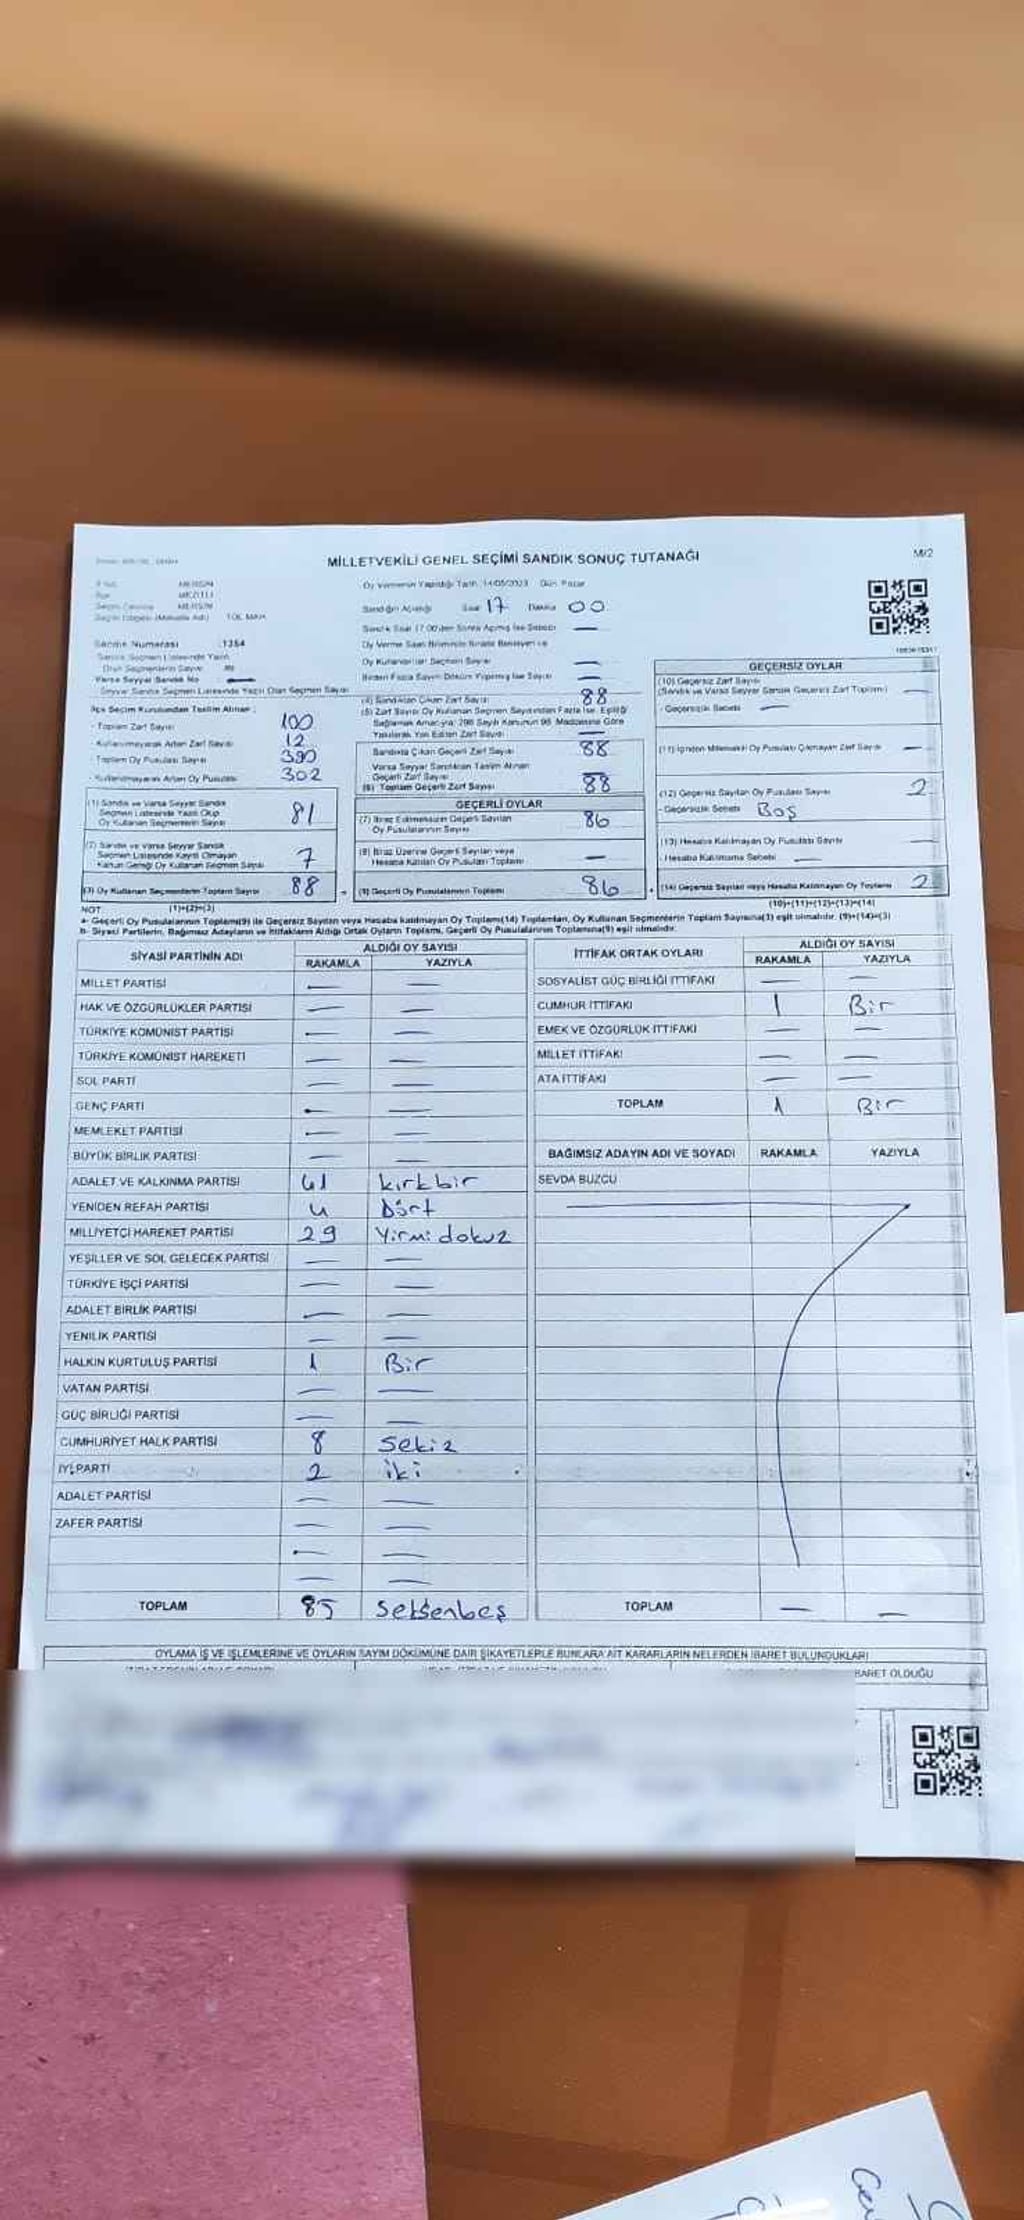 MİLLETVEKİLİ GENEL SEÇİMİ SANDIK SONUÇ TUTANAĞI
M/2
Oy Vermenin Yapıldığı Tarih: 14/05/2023 Gün: Pazar
MERSİN
MEZİTLİ
MERSİN
Sandığın Açıldığı Saat 17 Dakika 00
Sandık Saat 17:00'den Sonra Açılmış İse Sebebi —
Sandık Numarası : 1354
Oy Kullananlar Seçmen Sayısı —
Varsa Seyyar Sandık No —
Seyyar Sandık Seçmen Listesinde Yazılı Olan Seçmen Sayısı
İlçe Seçim Kurulundan Teslim Alınan :
- Toplam Zarf Sayısı 100
- Kullanılmayarak Artan Zarf Sayısı 12
- Toplam Oy Pusulası Sayısı 390
- Kullanılmayarak Artan Oy Pusulası 302
(1) Sandık ve Varsa Seyyar Sandık
Seçmen Listesinde Yazılı Olup
Oy Kullanan Seçmenlerin Sayısı 81
(2) Sandık ve Varsa Seyyar Sandık
Seçmen Listesinde Kayıtlı Olmayan
Kanun Gereği Oy Kullanan Seçmen Sayısı 7
(3) Oy Kullanan Seçmenlerin Toplam Sayısı 88
(4) Sandıktan Çıkan Zarf Sayısı 88
(5) Zarf Sayısı Oy Kullanan Seçmen Sayısından Fazla İse, Eşitliği
Sağlamak Amacıyla; 298 Sayılı Kanunun 98. Maddesine Göre
Yakılarak Yok Edilen Zarf Sayısı —
Sandıkta Çıkan Geçerli Zarf Sayısı 88
Varsa Seyyar Sandıktan Teslim Alınan
Geçerli Zarf Sayısı —
(6) Toplam Geçerli Zarf Sayısı 88
GEÇERLİ OYLAR
(7) İtiraz Edilmeksizin Geçerli Sayılan
Oy Pusulalarının Sayısı 86
(8) İtiraz Üzerine Geçerli Sayılan veya
Hesaba Katılan Oy Pusulası Toplamı —
(9) Geçerli Oy Pusulalarının Toplamı 86
GEÇERSİZ OYLAR
(10) Geçersiz Zarf Sayısı
(Sandık ve Varsa Seyyar Sandık Geçersiz Zarf Toplamı) —
- Geçersizlik Sebebi —
(11) İçinden Milletvekili Oy Pusulası Çıkmayan Zarf Sayısı —
(12) Geçersiz Sayılan Oy Pusulası Sayısı 2
- Geçersizlik Sebebi Boş
(13) Hesaba Katılmayan Oy Pusulası Sayısı —
- Hesaba Katılmama Sebebi —
(14) Geçersiz Sayılan veya Hesaba Katılmayan Oy Toplamı 2
NOT (1)+(2)=(3) (10)+(11)+(12)+(13)=(14)
a- Geçerli Oy Pusulalarının Toplamı(9) ile Geçersiz Sayılan veya Hesaba katılmayan Oy Toplamı(14) Toplamları, Oy Kullanan Seçmenlerin Toplam Sayısına(3) eşit olmalıdır. (9)+(14)=(3)
b- Siyasi Partilerin, Bağımsız Adayların ve İttifakların Aldığı Ortak Oyların Toplamı, Geçerli Oy Pusulalarının Toplamına(9) eşit olmalıdır.
SİYASİ PARTİNİN ADI ALDIĞI OY SAYISI
RAKAMLA YAZIYLA
MİLLET PARTİSİ — —
HAK VE ÖZGÜRLÜKLER PARTİSİ — —
TÜRKİYE KOMÜNİST PARTİSİ — —
TÜRKİYE KOMÜNİST HAREKETİ — —
SOL PARTİ — —
GENÇ PARTİ — —
MEMLEKET PARTİSİ — —
BÜYÜK BİRLİK PARTİSİ — —
ADALET VE KALKINMA PARTİSİ 41 kırkbir
YENİDEN REFAH PARTİSİ 4 Dört
MİLLİYETÇİ HAREKET PARTİSİ 29 Yirmi dokuz
YEŞİLLER VE SOL GELECEK PARTİSİ — —
TÜRKİYE İŞÇİ PARTİSİ — —
ADALET BİRLİK PARTİSİ — —
YENİLİK PARTİSİ — —
HALKIN KURTULUŞ PARTİSİ 1 Bir
VATAN PARTİSİ — —
GÜÇ BİRLİĞİ PARTİSİ — —
CUMHURİYET HALK PARTİSİ 8 Sekiz
İYİ PARTİ 2 iki
ADALET PARTİSİ — —
ZAFER PARTİSİ — —
— —
— —
TOPLAM 85 Seksenbeş
İTTİFAK ORTAK OYLARI ALDIĞI OY SAYISI
RAKAMLA YAZIYLA
SOSYALİST GÜÇ BİRLİĞİ İTTİFAKI — —
CUMHUR İTTİFAKI 1 Bir
EMEK VE ÖZGÜRLÜK İTTİFAKI — —
MİLLET İTTİFAKI — —
ATA İTTİFAKI — —
TOPLAM 1 Bir
BAĞIMSIZ ADAYIN ADI VE SOYADI RAKAMLA YAZIYLA
SEVDA BUZCU
TOPLAM — —
OYLAMA İŞ VE İŞLEMLERİNE VE OYLARIN SAYIM DÖKÜMÜNE DAİR ŞİKAYETLERLE BUNLARA AİT KARARLARIN NELERDEN İBARET BULUNDUKLARI
BARET OLDUĞU